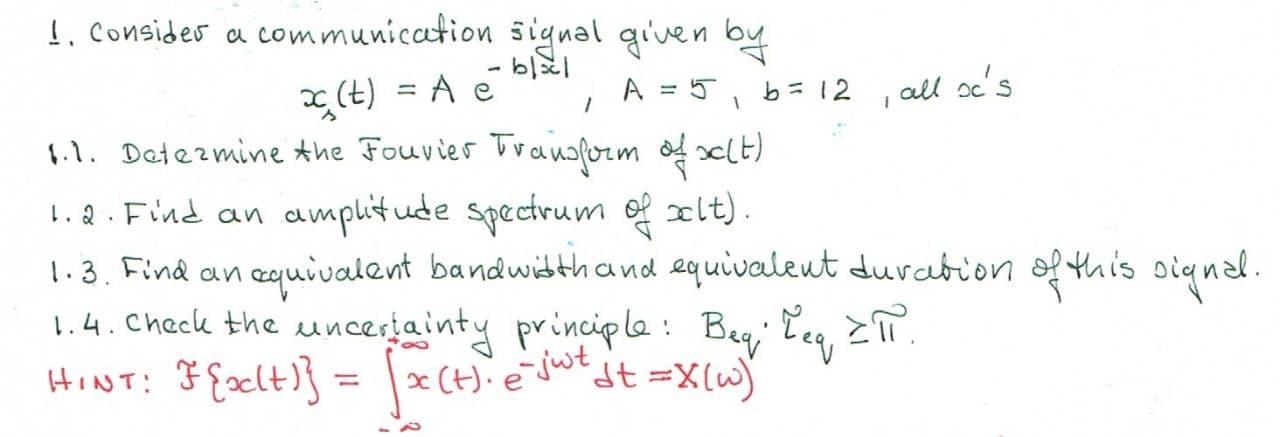 1. Consider a communication signal given by
x(t) = A e^{-b|x|}, A = 5, b = 12, all x's
1.1. Determine the Fourier Transform of x(t)
1.2. Find an amplitude spectrum of x(t).
1.3. Find an equivalent bandwidth and equivalent duration of this signal.
1.4. Check the uncertainty principle: B_{eq} · τ_{eq} ≥ π.
HINT: F{x(t)} = ∫_{-∞}^{+∞} x(t) · e^{-jωt} dt = X(ω)